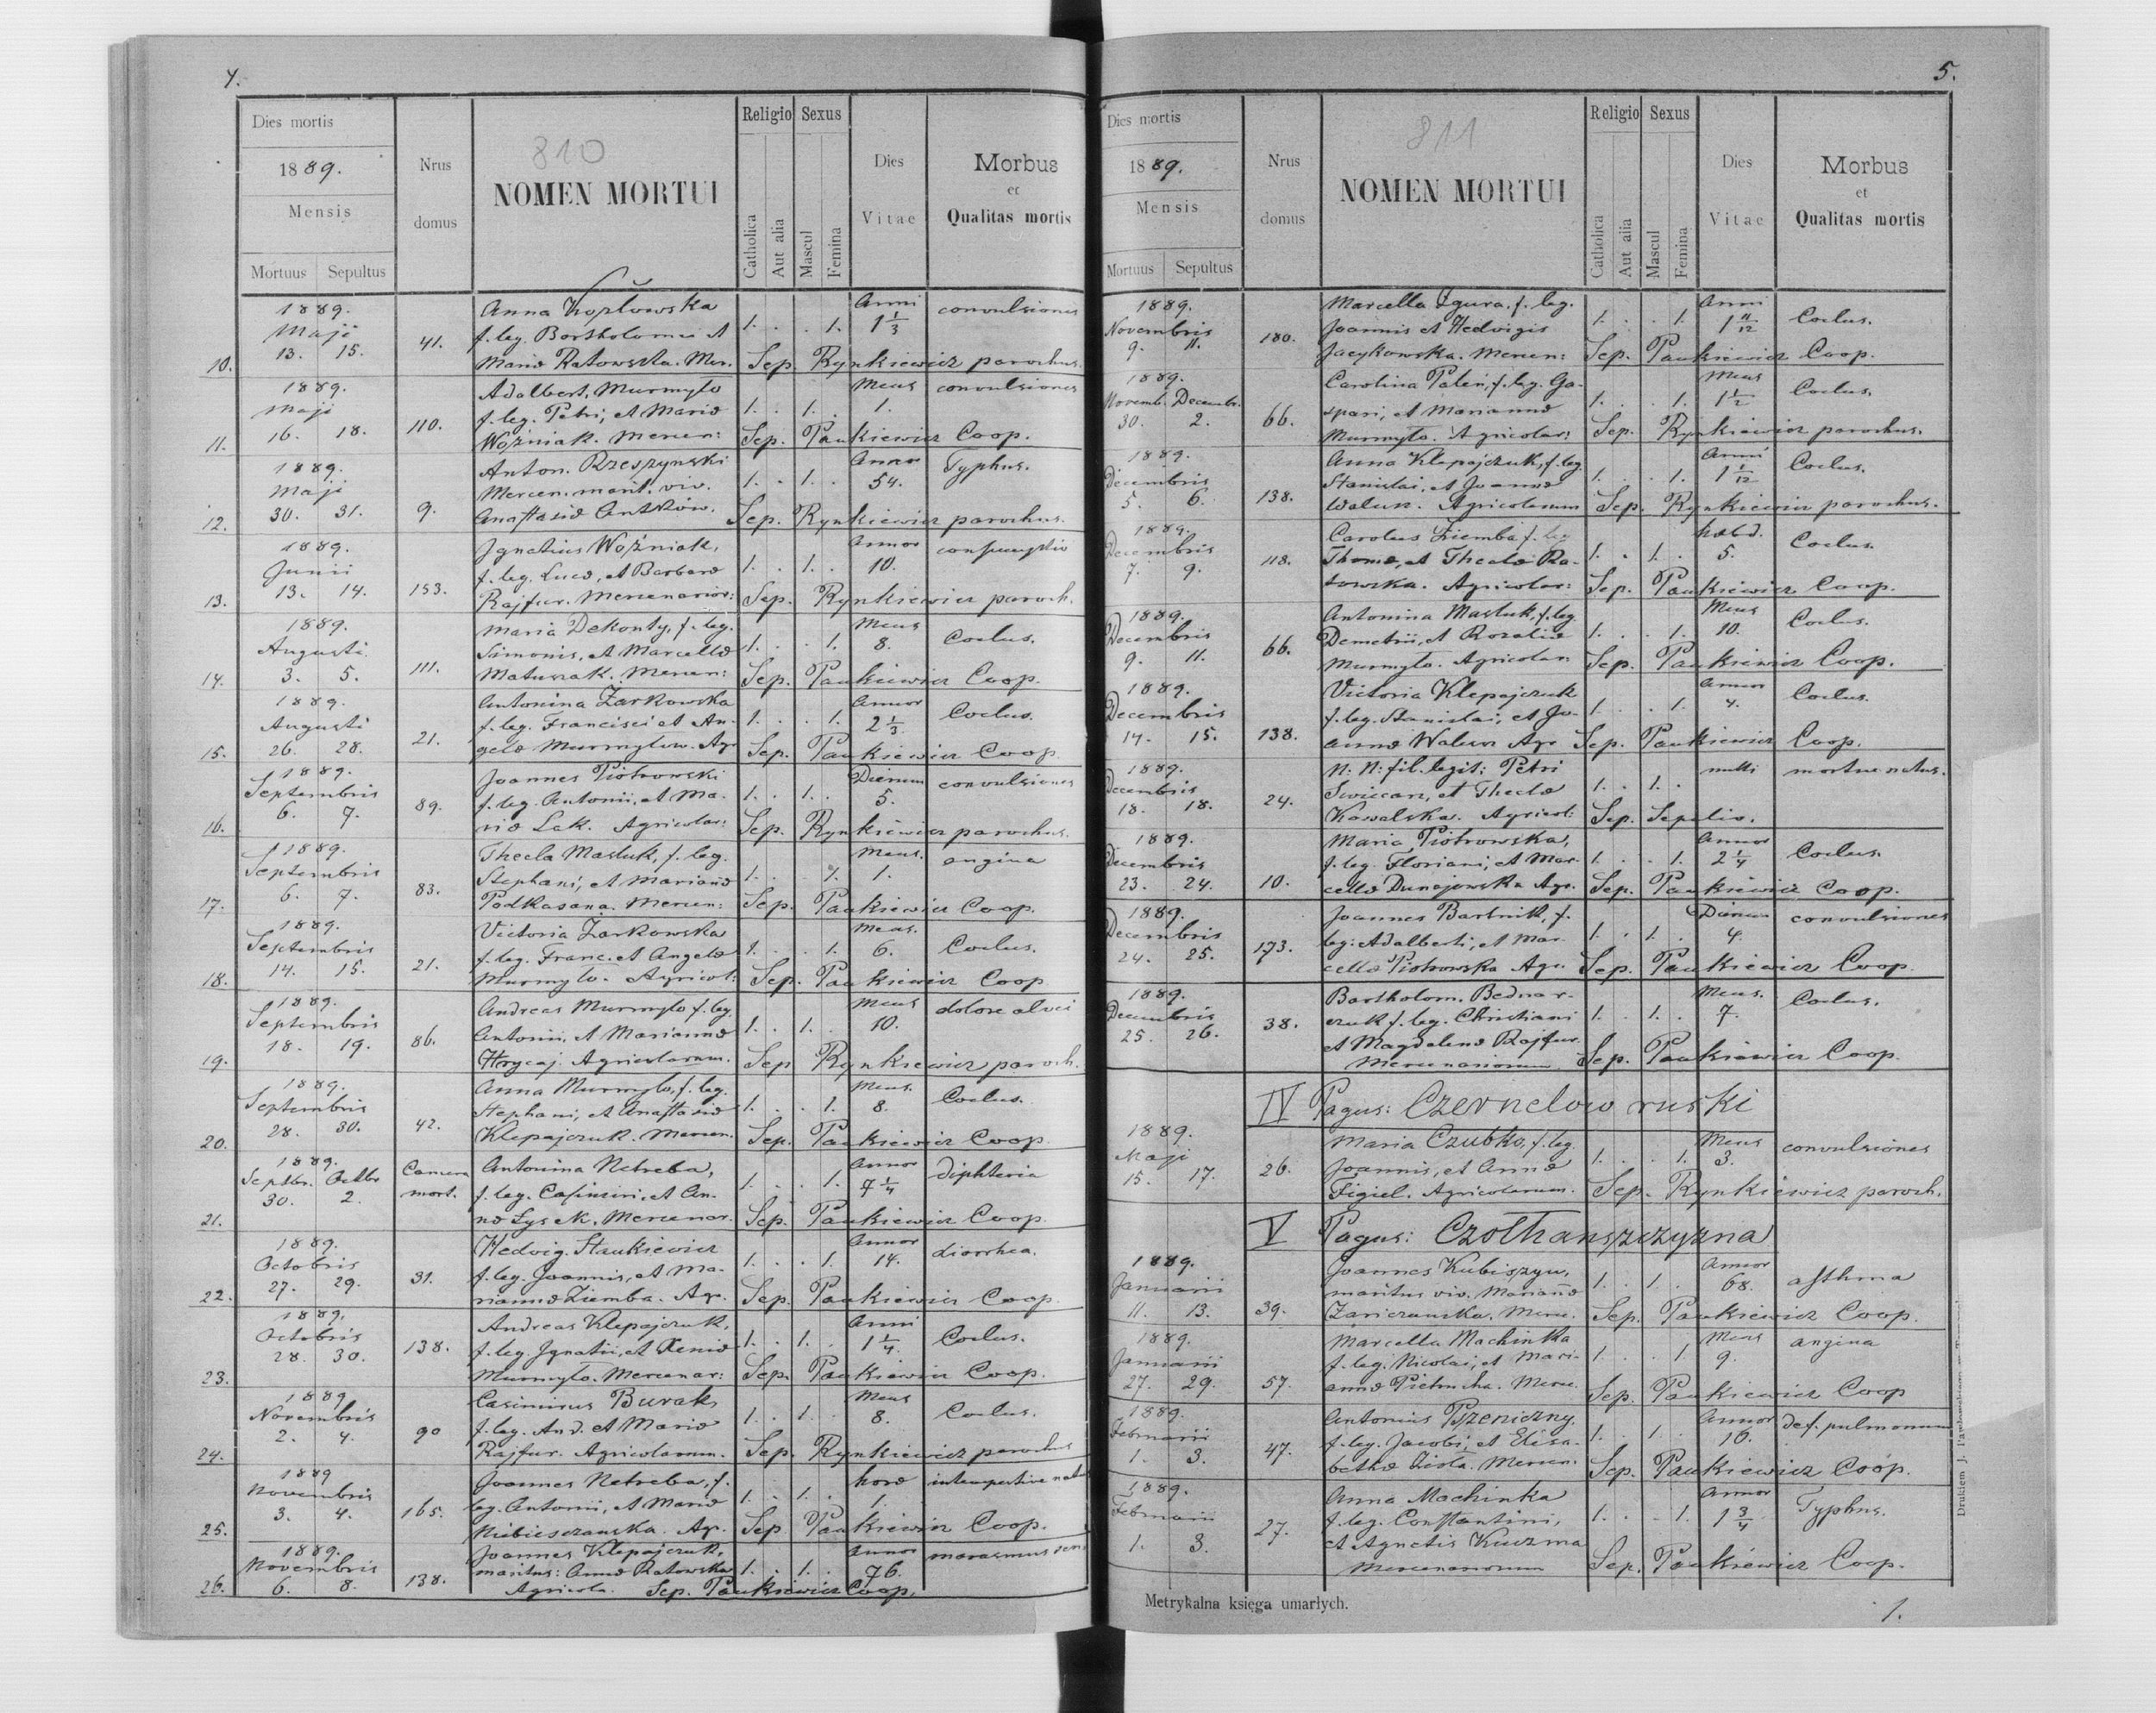 4.
Dies mortis
1889.
Mensis
Mortuus Sepultus
Nrus domus
810
NOMEN MORTUI
Religio Sexus
Catholica
Aut alia
Mascul
Femina
Dies
Vitae
Morbus
et
Qualitas mortis
1889. Anna Kozłowska Anni convulsiones
Maji f. leg. Bartholomei et 1. . . 1. 1 1/3
10. 13. 15. 41. Maria Ratowska. Mer. Sep. Rynkiewicz parochus.
1889. Adalbert. Murmyło Mens convulsiones
Maji f. leg. Petri, et Maria 1. . 1. . 1.
11. 16. 18. 110. Woźniak. Mercen: Sep. Paukiewicz Coop.
1889. Anton. Rzeszynski Annor Typhus.
Maji Mercen. marit. viv. 1. . 1. . 54.
12. 30. 31. 9. Anastasia Antków. Sep. Rynkiewicz parochus.
1889. Ignatius Woźniak, Annor
Junii f. leg. Luca, et Barbara 1. . 1. . 10.
13. 13. 14. 153. Rajfur. Mercenarior: Sep. Rynkiewicz paroch.
1889. Maria Dekonty, f. leg. Mens Coclus.
Augusti Simonis, et Marcella 1. . . 1. 8.
14. 3. 5. 111. Matuszak. Mercen: Sep. Paukiewicz Coop.
1889. Antonina Żarkowska Annor Coclus.
Augusti f. leg. Francisci et An- 1. . . 1. 2 1/3
15. 26. 28. 21. gela Murmyłow. Agr. Sep. Paukiewicz Coop.
1889. Joannes Piotrowski Dierum convulsiones
Septembris f. leg. Antonii, et Ma- 1. . 1. . 5.
16. 6. 7. 89. ria Lak. Agricolar: Sep. Rynkiewicz parochus.
1889. Thecla Masluk, f. leg. Mens. angina
Septembris Stephani, et Marianna 1. . . 1. 1.
17. 6. 7. 83. Podkasana. Mercen: Sep. Paukiewicz Coop.
1889. Victoria Żarkowska Mens. Coclus.
Septembris f. leg. Franc. et Angela 1. . . 1. 6.
18. 14. 15. 21. Murmyło. Agricol: Sep. Paukiewicz Coop.
1889. Andreas Murmyło f. leg. Mens dolore alvei
Septembris Antonii, et Marianna 1. . 1. . 10.
19. 18. 19. 86. Hrycaj. Agricolarum. Sep Rynkiewicz paroch.
1889. Anna Murmyło, f. leg. Mens. Coclus.
Septembris Stephani, et Anastasia 1. . . 1. 8.
20. 28. 30. 42. Klepajczuk. Mercen. Sep. Paukiewicz Coop.
1889. Camera Antonina Netreba, Annor diphteria
Septbr. Octbr mort. f. leg. Casimiri, et An- 1. . . 1. 7 1/4
21. 30. 2. na Łysek. Mercenar. Sep. Paukiewicz Coop.
1889. Hedvig. Staukiewicz Annor diorrhea.
Octobris f. leg. Joannis, et Ma- 1. . . 1. 14.
22. 27. 29. 31. rianna Ziemba. Agr. Sep. Paukiewicz Coop.
1889. Andreas Klepajczuk, Anni Coclus.
Octobris f. leg. Ignatii, et Xenia 1. . 1. . 1 1/4.
23. 28. 30. 138. Murmyło. Mercenar: Sep. Paukiewicz Coop.
1889 Casimirus Burak Mens Coclus.
Novembris f. leg. And. et Maria 1. . 1. . 8.
24. 2. 4. 90 Rajfur. Agricolarum. Sep. Rynkiewicz parochus
1889 Joannes Netreba, f. hora intempestive
Novembris leg. Antonii, et Maria 1. . 1. . 1.
25. 3. 4. 165. Niebieszczanska. Agr. Sep. Paukiewicz Coop.
1889. Joannes Klepajczuk, Annor marasmus
Novembris maritus: Anna Ratowska 1. . 1. . 76.
26. 6. 8. 138. Agricola. Sep. Paukiewicz Coop.
5.
Dies mortis
1889.
Mensis
Mortuus Sepultus
Nrus domus
811
NOMEN MORTUI
Religio Sexus
Catholica
Aut alia
Mascul
Femina
Dies
Vitae
Morbus
et
Qualitas mortis
1889. Marcella Zgura, f. leg. Anni Coclus.
Novembris Joannis et Hedvigis 1. . . 1. 1 11/12
9. 11. 180. Jacykowska. Mercen: Sep. Paukiewicz Coop.
1889. Carolina Paleń, f. leg. Ga- Mens Coclus.
Novemb. Decembr. spari, et Marianna 1. . . 1. 1 1/2
30. 2. 66. Murmyło. Agricolar: Sep. Rynkiewicz parochus.
1889. Anna Klepajczuk, f. leg. Anni Coclus.
Decembris Stanislai, et Joanna 1. . . 1. 1 1/12
5. 6. 138. Walun. Agricolarum Sep. Rynkiewicz parochus.
1889. Carolus Ziemba f. leg hebd. Coclus.
Decembris Thoma, et Thecla Ra- 1. . 1. . 5.
7. 9. 118. towska. Agricolar: Sep. Paukiewicz Coop.
1889. Antonina Masluk, f. leg. Mens Coclus.
Decembris Demetrii, et Rozalia 1. . . 1. 10.
9. 11. 66. Murmyło. Agricolar: Sep. Paukiewicz Coop.
1889. Victoria Klepajczuk Annor Coclus.
Decembris f. leg. Stanislai, et Jo- 1. . . 1. 4.
14. 15. 138. anna Walun Agr Sep. Paukiewicz Coop.
1889. N: N: fil. legit: Petri nulli mortue natus.
Decembris Swiecarz, et Thecla 1. . 1. .
18. 18. 24. Kowalska. Agricol: Sep. Sepelio.
1889. Maria Piotrowska, Annor Coclus.
Decembris f. leg. Floriani, et Mar- 1. . . 1. 2 1/4
23. 24. 10. cella Dunajowska Agr. Sep. Paukiewicz Coop.
1889. Joannes Bartnik, f. Dierum convulsiones
Decembris leg: Adalberti, et Mar- 1. . 1. . 4.
24. 25. 173. cella Piotrowska Agr. Sep. Paukiewicz Coop.
1889. Bartholom. Bednar- Mens. Coclus.
Decembris czuk f. leg. Christiani 1. . 1. . 7.
25. 26. 38. et Magdalena Rajfur.
Mercenariorum. Sep. Paukiewicz Coop.
IV Pagus: Czernelow ruski
1889. Maria Czubko, f. leg Mens convulsiones
Maji Joannis, et Anna 1. . . 1. 3.
15. 17. 26. Figiel. Agricolarum. Sep. Rynkiewicz paroch.
V Pagus: Czolhanszczyzna
1889. Joannes Kubiszyn, Annor asthma
Januarii maritus viv. Marianna 1. . 1. . 68.
11. 13. 39. Zariczanska. Merc. Sep. Paukiewicz Coop.
1889. Marcella Machinka Mens angina
Januarii f. leg. Nicolai, et Mari- 1. . . 1 9.
27. 29. 57. anna Pietrucha. Merc. Sep. Paukiewicz Coop
1889. Antonius Pszeniczny, Annor def. pulmonum
Februarii f. leg. Jacobi, et Elisa- 1. . 1. . 16.
1. 3. 47. betha Ziola. Mercen. Sep. Paukiewicz Coop.
1889. Anna Machinka Annor Typhus.
Februarii f. leg. Constantini, 1. . . 1. 1 3/4
1. 3. 27. et Agnetis Kuczma
Mercenariorum Sep. Paukiewicz Coop.
Metrykalna księga umarłych.
1.